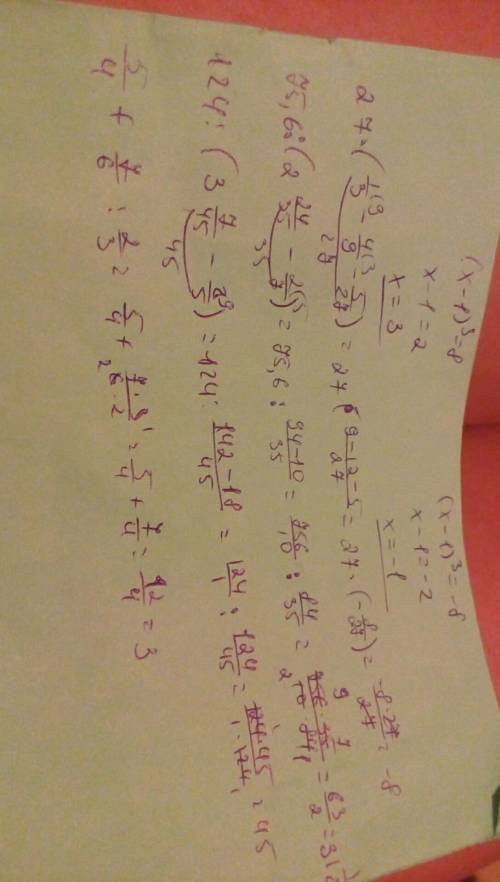 (x-1)³=8 (x-1)³=-8
x-1=2 x-1=-2
x=3 x=-1
27·(1/3 - 4/9 - 5/27) = 27·(9-12-5)/27 = 27·(-8/27) = -8·27/27 = -8
75,6:(2 24/35 - 2/7) = 75,6 : (94-10)/35 = 756/10 : 84/35 = 756·35/10·84 = 63/2 = 31 1/2
124:(3 7/45 - 2/5) = 124: (142-18)/45 = 124/1 : 124/45 = 124·45/1·124 = 45
5/4 + 7/6 : 2/3 = 5/4 + 7·3/6·2 = 5/4 + 7/4 = 12/4 = 3